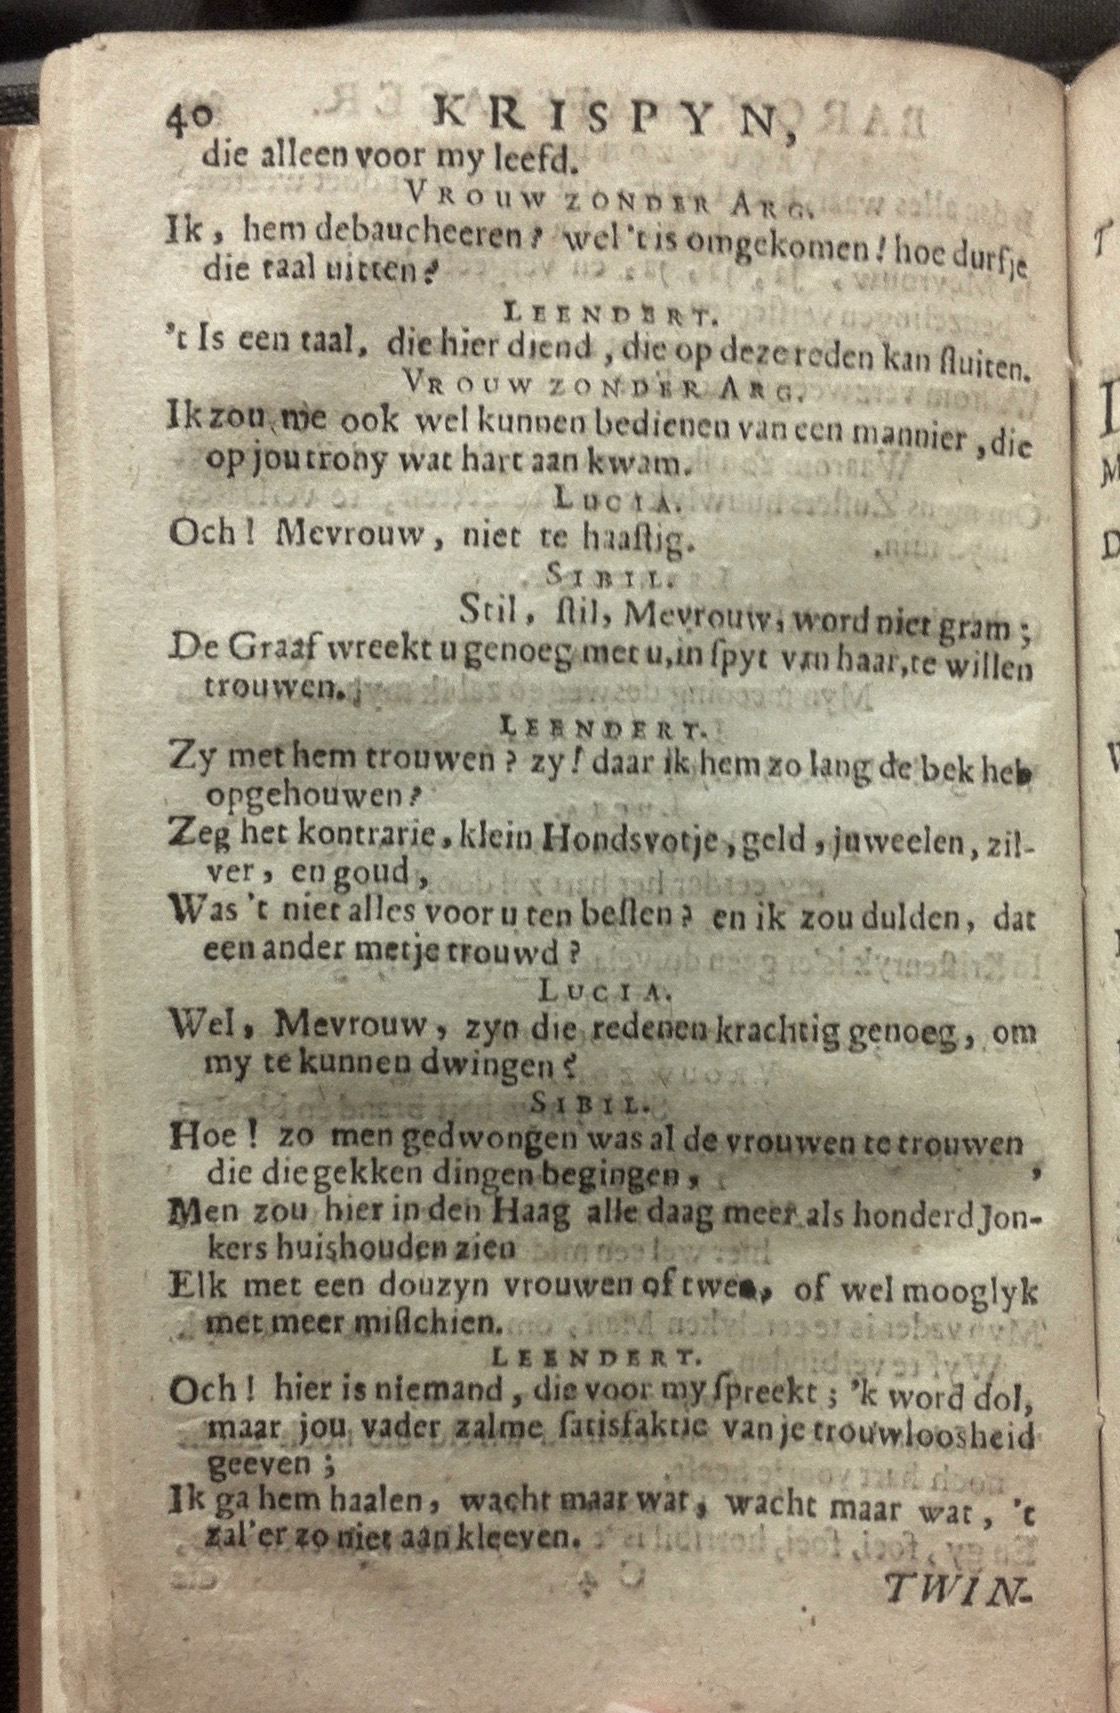 40 KRISPYN,
die alleen voor my leefd.
VROUW ZONDER ARG.
Ik, hem debaucheeren? wel 't is omgekomen! hoe durfje
die taal uitten?
LEENDERT.
't Is een taal, die hier diend, die op deze reden kan ſluiten.
VROUW ZONDER ARG.
Ik zou me ook wel kunnen bedienen van een mannier, die
op jou trony wat hart aan kwam.
LUCIA.
Och! Mevrouw, niet te haaſtig.
SIBIL.
Stil, ſtil, Mevrouw, word niet gram;
De Graaf wreekt u genoeg met u, in ſpyt van haar, te willen
trouwen.
LEENDERT.
Zy met hem trouwen? zy! daar ik hem zo lang de bek heb
opgehouwen?
Zeg het kontrarie, klein Hondsvotje, geld, juweelen, zil-
ver, en goud,
Was 't niet alles voor u ten beſten? en ik zou dulden, dat
een ander met je trouwd?
LUCIA.
Wel, Mevrouw, zyn die redenen krachtig genoeg, om
my te kunnen dwingen?
SIBIL.
Hoe! zo men gedwongen was al de vrouwen te trouwen,
die die gekken dingen begingen,
Men zou hier in den Haag alle daag meer als honderd Jon-
kers huishouden zien
Elk met een douzyn vrouwen of twee, of wel mooglyk
met meer miſſchien.
LEENDERT.
Och! hier is niemand, die voor my ſpreekt; 'k word dol,
maar jou vader zal me ſatisfaktie van je trouwloosheid
geeven;
Ik ga hem haalen, wacht maar wat, wacht maar wat, 't
zal'er zo niet aan kleeven.
TWIN-